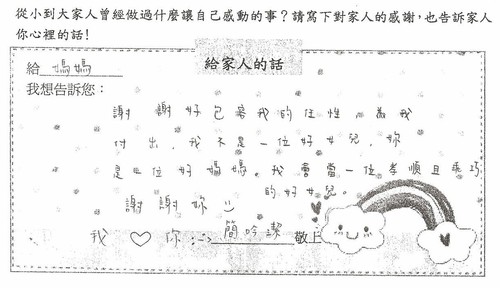 從小到大家人曾經做過什麼讓自己感動的事？請寫下對家人的感謝，也告訴家人
你心裡的話！
給家人的話
給 媽媽
我想告訴您：
謝謝好已容我的任性，為我
付出，我不是一位好女兒，妳
是一位好媽媽。我會當一位孝順且乖巧
的好女兒。
謝謝妳
我♡你 簡吟潔 敬上